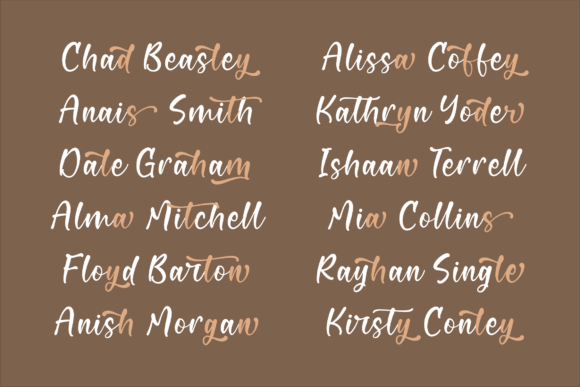 Chad Beasley
Anais Smith
Dale Graham
Alma Mitchell
Floyd Barton
Anish Morgan
Alissa Coffey
Kathryn Yoder
Ishaan Terrell
Mia Collins
Rayhan Single
Kirsty Conley